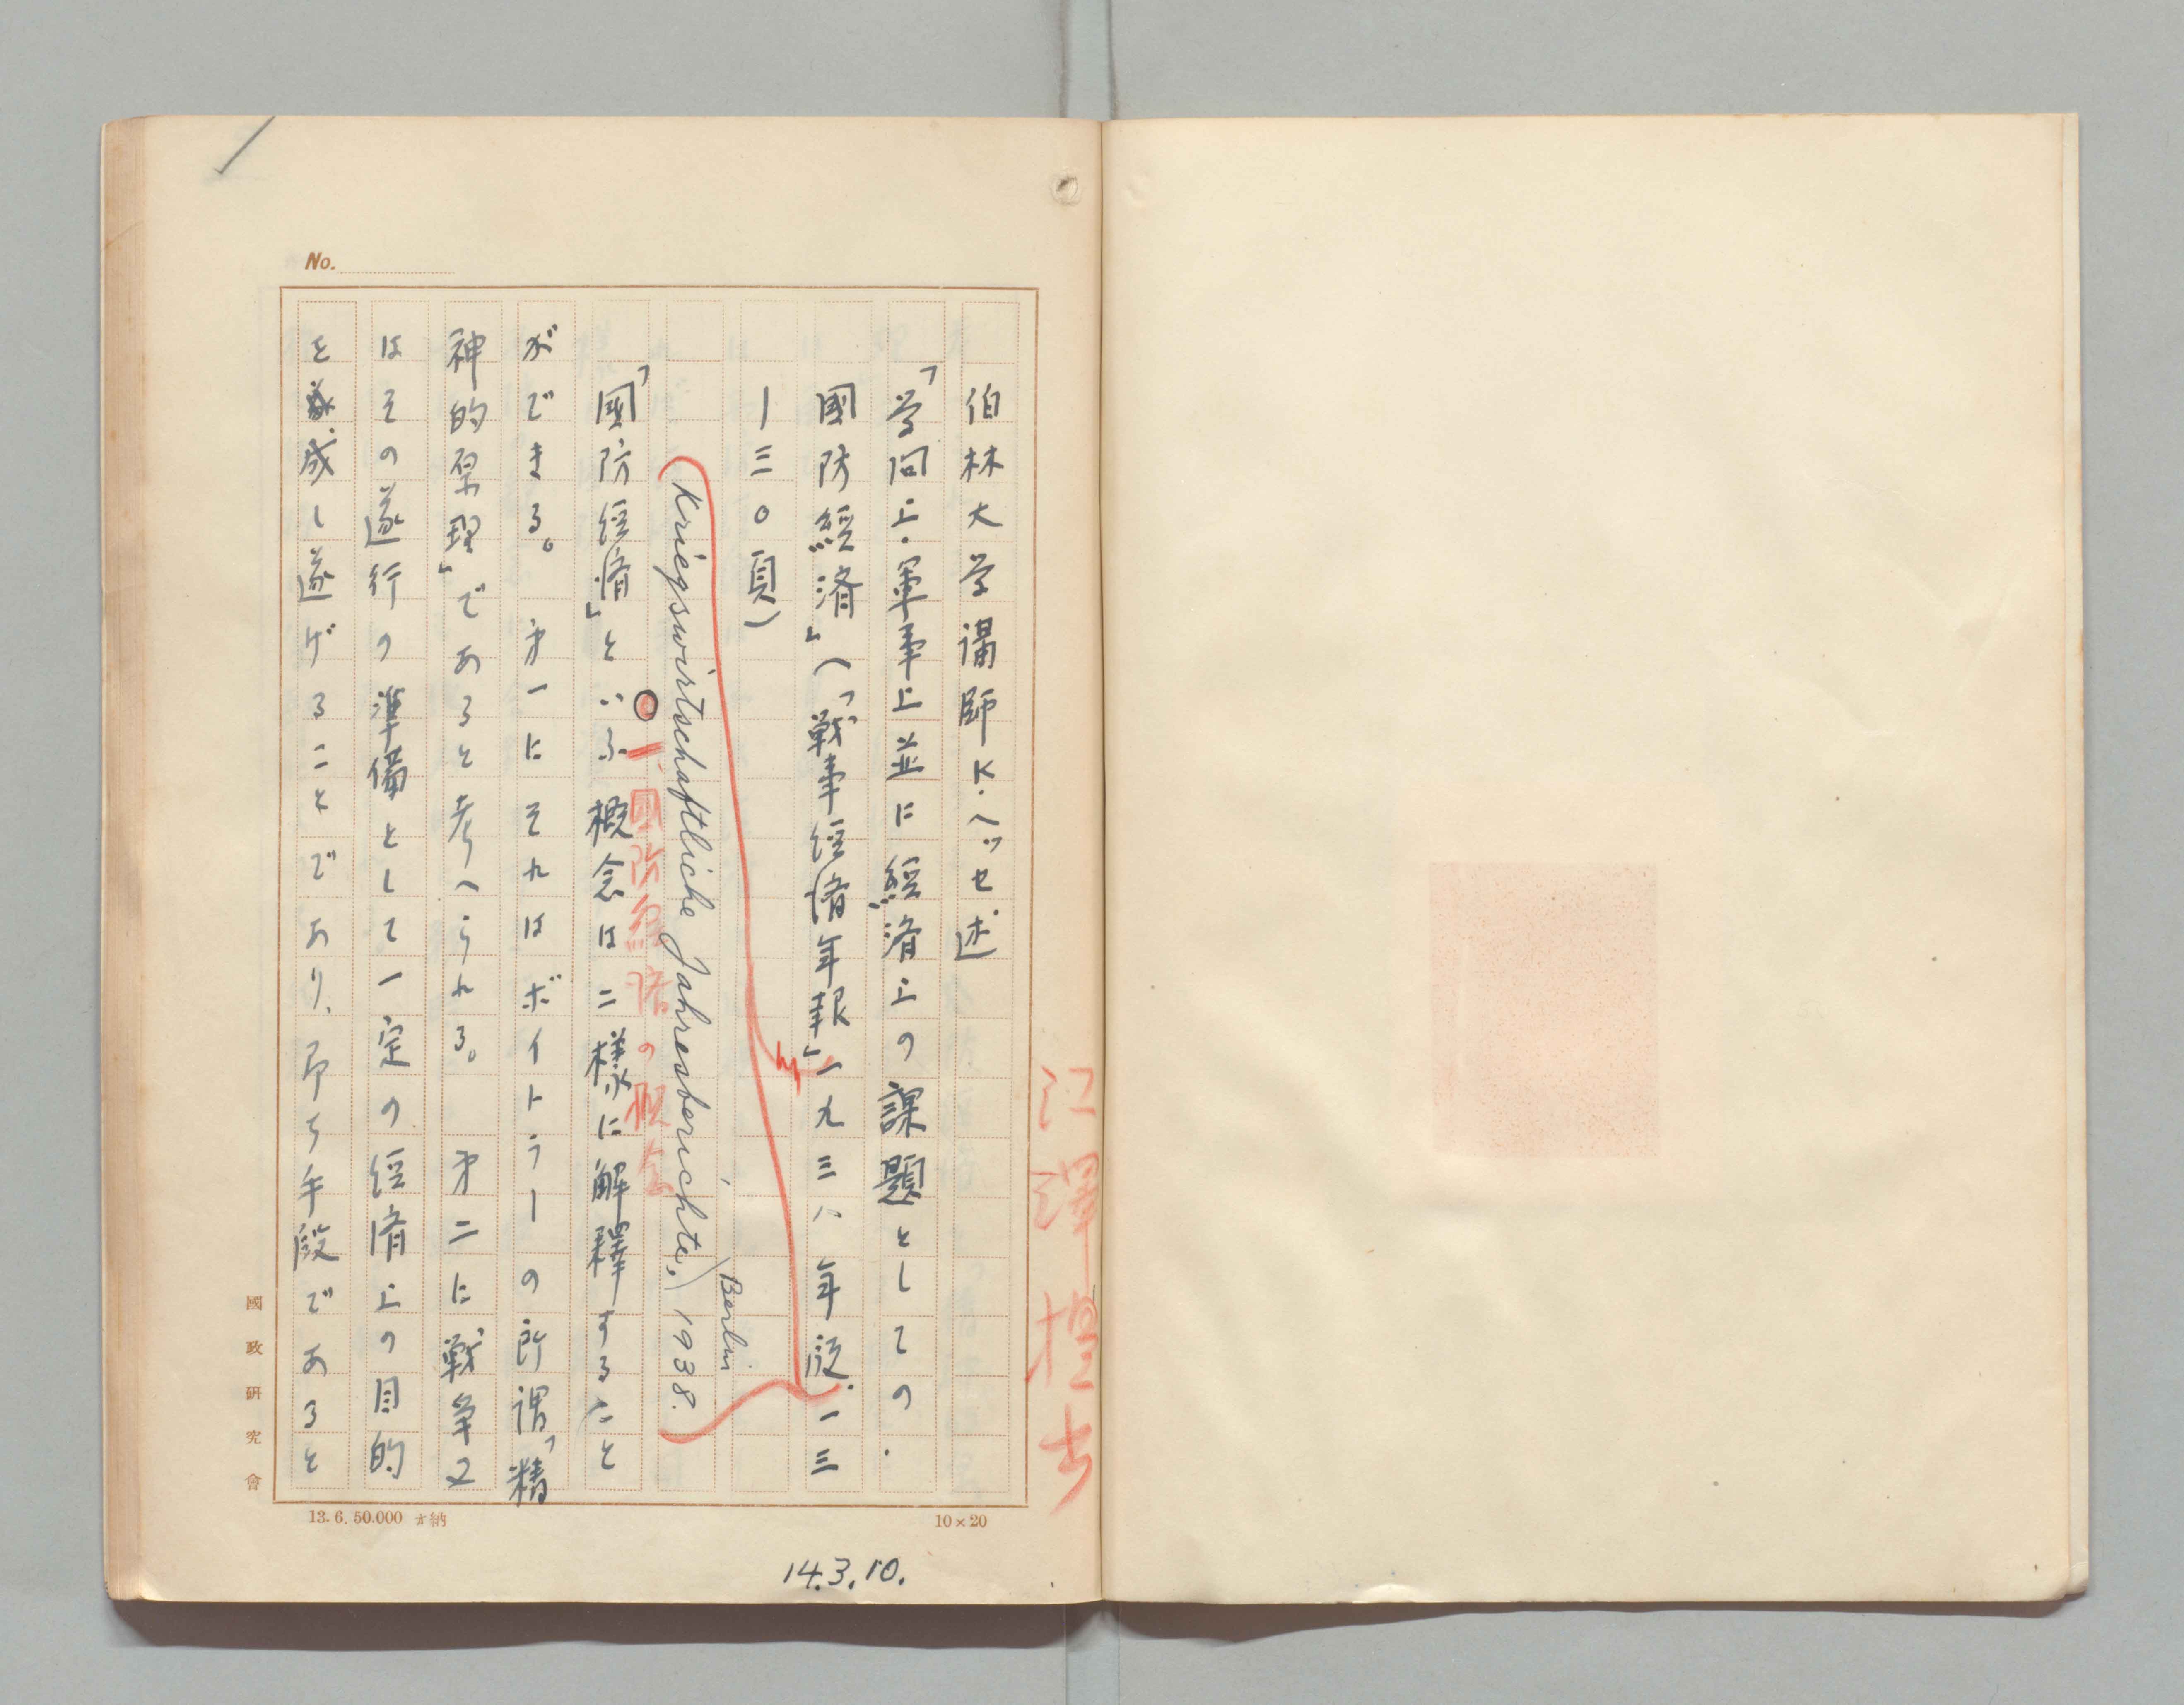 No.
伯林大学講師K.ヘッセ述
「学问上・軍事上並に経済上の課題としての・
國防経済」(「戦争経済年報」一九三八年版.一三
一三〇頁)
Berlin
(Kriegswirtschaftliche Jahresberichte,) 1938.
一、國防経済の概念
「國防経済」といふ概念は二様に解釋すること
ができる。 才一にそれはボイトラーの所謂「精
神的原理」であると考へられる。 才二に戦争又
はその遂行の準備として一定の経済上の目的
を成し遂げることであり、即ち手段であると
國政研究會
13.6.50.000 納
10×20
14.3.10.
江澤